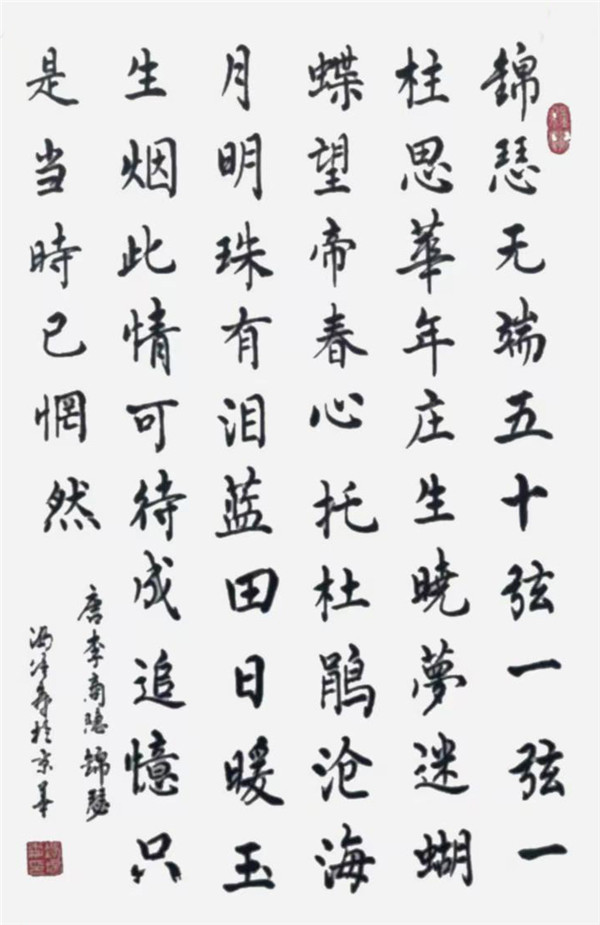 錦瑟无端五十弦一弦一
柱思華年庄生曉夢迷蝴
蝶望帝春心托杜鹃沧海
月明珠有泪蓝田日暖玉
生烟此情可待成追憶只
是当時已惘然
唐李商隐錦瑟
於京華